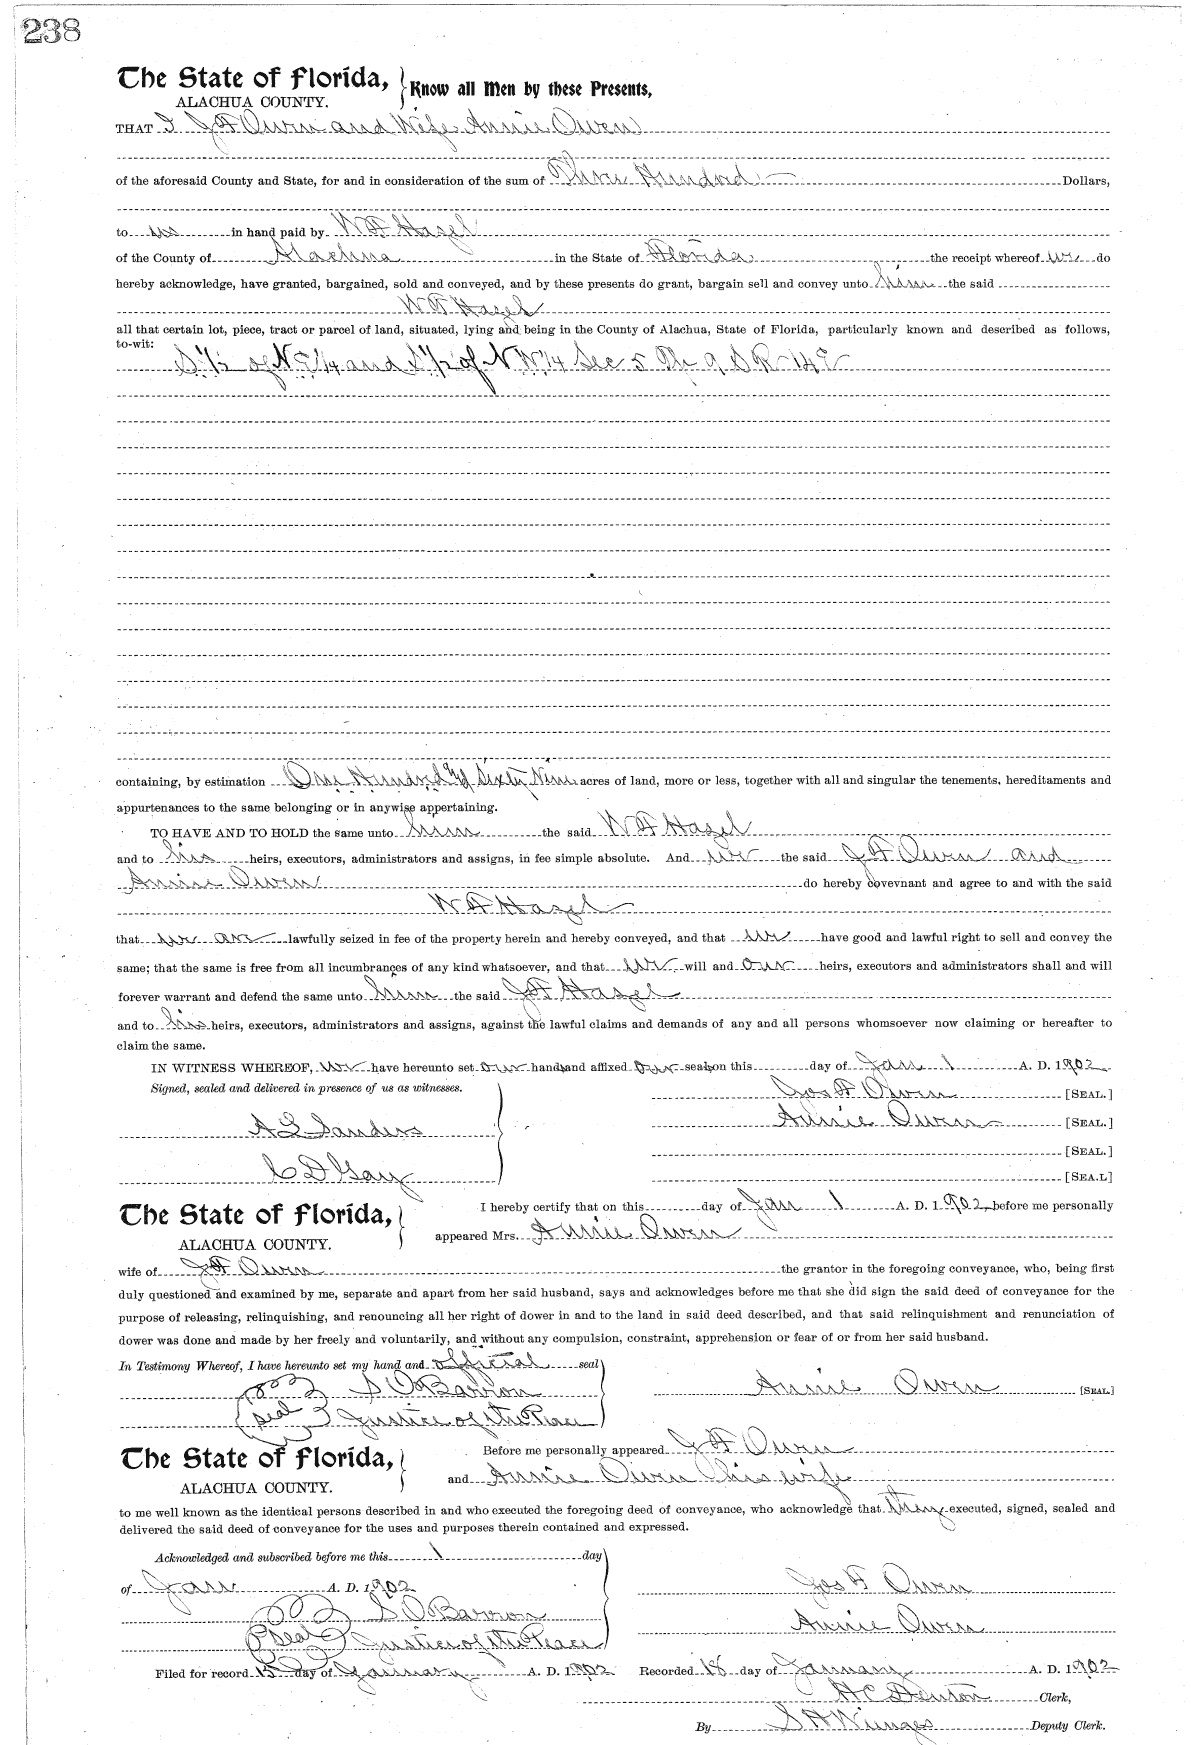 238
The State of Florida, Know all Men by these Presents,
ALACHUA COUNTY.
THAT I J F Owen and Wife Annie Owen
of the aforesaid County and State, for and in consideration of the sum of Three Hundred Dollars,
to us in hand paid by W F Hazel
of the County of Alachua in the State of Florida the receipt whereof we do
hereby acknowledge, have granted, bargained, sold and conveyed, and by these presents do grant, bargain sell and convey unto him the said
W F Hazel
all that certain lot, piece, tract or parcel of land, situated, lying and being in the County of Alachua, State of Florida, particularly known and described as follows,
to-wit:
S 1/2 of N E 1/4 and S 1/2 of N W 1/4 Sec 5 Tp 9 S R 14 E
containing, by estimation One Hundred & Sixty Nine acres of land, more or less, together with all and singular the tenements, hereditaments and
appurtenances to the same belonging or in anywise appertaining.
TO HAVE AND TO HOLD the same unto him the said W F Hazel
and to his heirs, executors, administrators and assigns, in fee simple absolute. And we the said J F Owen and
Annie Owen do hereby covevnant and agree to and with the said
W F Hazel
that we are lawfully seized in fee of the property herein and hereby conveyed, and that we have good and lawful right to sell and convey the
same; that the same is free from all incumbrances of any kind whatsoever, and that we will and our heirs, executors and administrators shall and will
forever warrant and defend the same unto him the said J F Hazel
and to his heirs, executors, administrators and assigns, against the lawful claims and demands of any and all persons whomsoever now claiming or hereafter to
claim the same.
IN WITNESS WHEREOF, we have hereunto set our hands and affixed our seals on this day of Jan 1 A. D. 1902
Signed, sealed and delivered in presence of us as witnesses.
Jos F Owen [SEAL.]
Annie Owen [SEAL.]
A L Sanders
[SEAL.]
C D Gay
[SEA.L]
The State of Florida, I hereby certify that on this day of Jan 1 A. D. 1902 before me personally
ALACHUA COUNTY. appeared Mrs. Annie Owen
wife of J F Owen the grantor in the foregoing conveyance, who, being first
duly questioned and examined by me, separate and apart from her said husband, says and acknowledges before me that she did sign the said deed of conveyance for the
purpose of releasing, relinquishing, and renouncing all her right of dower in and to the land in said deed described, and that said relinquishment and renunciation of
dower was done and made by her freely and voluntarily, and without any compulsion, constraint, apprehension or fear of or from her said husband.
In Testimony Whereof, I have hereunto set my hand and official seal
S O Barron Annie Owen [SEAL.]
Seal Justice of the Peace
The State of Florida, Before me personally appeared J F Owen
ALACHUA COUNTY. and Annie Owen his wife
to me well known as the identical persons described in and who executed the foregoing deed of conveyance, who acknowledge that they executed, signed, sealed and
delivered the said deed of conveyance for the uses and purposes therein contained and expressed.
Acknowledged and subscribed before me this 1 day
of Jan A. D. 1902 Jos F Owen
S O Barron
Annie Owen
Seal Justice of the Peace
Filed for record 15 day of January A. D. 1902 Recorded 18 day of January A. D. 1902
H C Denton Clerk,
By S H Wienges Deputy Clerk.